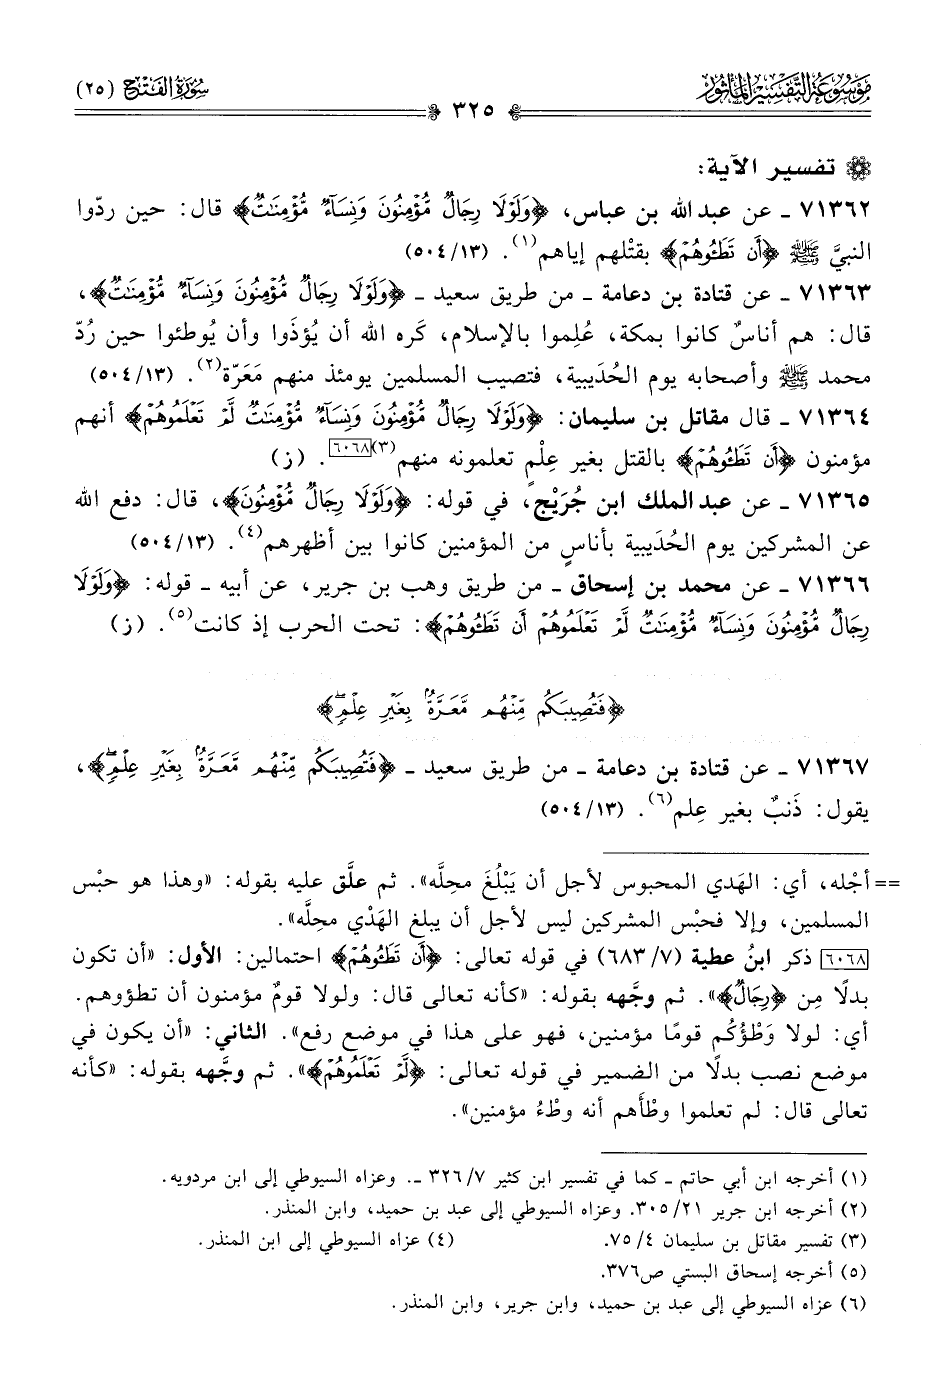 مَوْسُوعَة التَّفْسِيْر المَأْثُور
سُورَةُ الفَتْح (٢٥)
٣٢٥
تفسير الآية:
٧١٣٦٢ ـ عن عبد الله بن عباس، ﴿وَلَوْلَا رِجَالٌ مُّؤْمِنُونَ وَنِسَآءٌ مُّؤْمِنَٰتٌ﴾ قال: حين ردّوا
النبيَّ ﷺ ﴿أَن تَطَـُٔوهُمْ﴾ بقتْلهم إياهم(١). (١٣/ ٥٠٤)
٧١٣٦٣ ـ عن قتادة بن دعامة ـ من طريق سعيد ـ ﴿وَلَوْلَا رِجَالٌ مُّؤْمِنُونَ وَنِسَآءٌ مُّؤْمِنَٰتٌ﴾،
قال: هم أناسٌ كانوا بمكة، عُلِموا بالإسلام، كَره الله أن يُؤذَوا وأن يُوطئوا حين رُدّ
محمد ﷺ وأصحابه يوم الحُدَيبية، فتصيب المسلمين يومئذ منهم مَعَرّة(٢). (١٣/ ٥٠٤)
٧١٣٦٤ ـ قال مقاتل بن سليمان: ﴿وَلَوْلَا رِجَالٌ مُّؤْمِنُونَ وَنِسَآءٌ مُّؤْمِنَٰتٌ لَّمْ تَعْلَمُوهُمْ﴾ أنهم
مؤمنون ﴿أَن تَطَـُٔوهُمْ﴾ بالقتل بغير عِلْمٍ تعلمونه منهم(٣)[٦٠٦٨]. (ز)
٧١٣٦٥ ـ عن عبد الملك ابن جُرَيْج، في قوله: ﴿وَلَوْلَا رِجَالٌ مُّؤْمِنُونَ﴾، قال: دفع الله
عن المشركين يوم الحُدَيبية بأناسٍ من المؤمنين كانوا بين أظهرهم(٤). (١٣/ ٥٠٤)
٧١٣٦٦ ـ عن محمد بن إسحاق ـ من طريق وهب بن جرير، عن أبيه ـ قوله: ﴿وَلَوْلَا
رِجَالٌ مُّؤْمِنُونَ وَنِسَآءٌ مُّؤْمِنَٰتٌ لَّمْ تَعْلَمُوهُمْ أَن تَطَـُٔوهُمْ﴾: تحت الحرب إذ كانت(٥). (ز)
﴿فَتُصِيبَكُم مِّنْهُم مَّعَرَّةٌۢ بِغَيْرِ عِلْمٍۖ﴾
٧١٣٦٧ ـ عن قتادة بن دعامة ـ من طريق سعيد ـ ﴿فَتُصِيبَكُم مِّنْهُم مَّعَرَّةٌۢ بِغَيْرِ عِلْمٍۖ﴾،
يقول: ذَنبٌ بغير عِلم(٦). (١٣/ ٥٠٤)
== أجْله، أي: الهَدي المحبوس لأجل أن يَبْلُغَ محِلَّه». ثم علَّق عليه بقوله: «وهذا هو حبْس
المسلمين، وإلا فحبْس المشركين ليس لأجل أن يبلغ الهَدْي محِلَّه».
[٦٠٦٨] ذكر ابنُ عطية (٧/ ٦٨٣) في قوله تعالى: ﴿أَن تَطَـُٔوهُمْ﴾ احتمالين: الأول: «أن تكون
بدلًا مِن ﴿رِجَالٌ﴾». ثم وجَّهه بقوله: «كأنه تعالى قال: ولولا قومٌ مؤمنون أن تطؤوهم.
أي: لولا وَطْؤُكُم قومًا مؤمنين، فهو على هذا في موضع رفع». الثاني: «أن يكون في
موضع نصب بدلًا من الضمير في قوله تعالى: ﴿لَّمْ تَعْلَمُوهُمْ﴾». ثم وجَّهه بقوله: «كأنه
تعالى قال: لم تعلموا وطْأهم أنه وطْءُ مؤمنين».
(١) أخرجه ابن أبي حاتم ـ كما في تفسير ابن كثير ٧/ ٣٢٦ ـ. وعزاه السيوطي إلى ابن مردويه.
(٢) أخرجه ابن جرير ٢١/ ٣٠٥. وعزاه السيوطي إلى عبد بن حميد، وابن المنذر.
(٣) تفسير مقاتل بن سليمان ٤/ ٧٥. (٤) عزاه السيوطي إلى ابن المنذر.
(٥) أخرجه إسحاق البستي ص٣٧٦.
(٦) عزاه السيوطي إلى عبد بن حميد، وابن جرير، وابن المنذر.